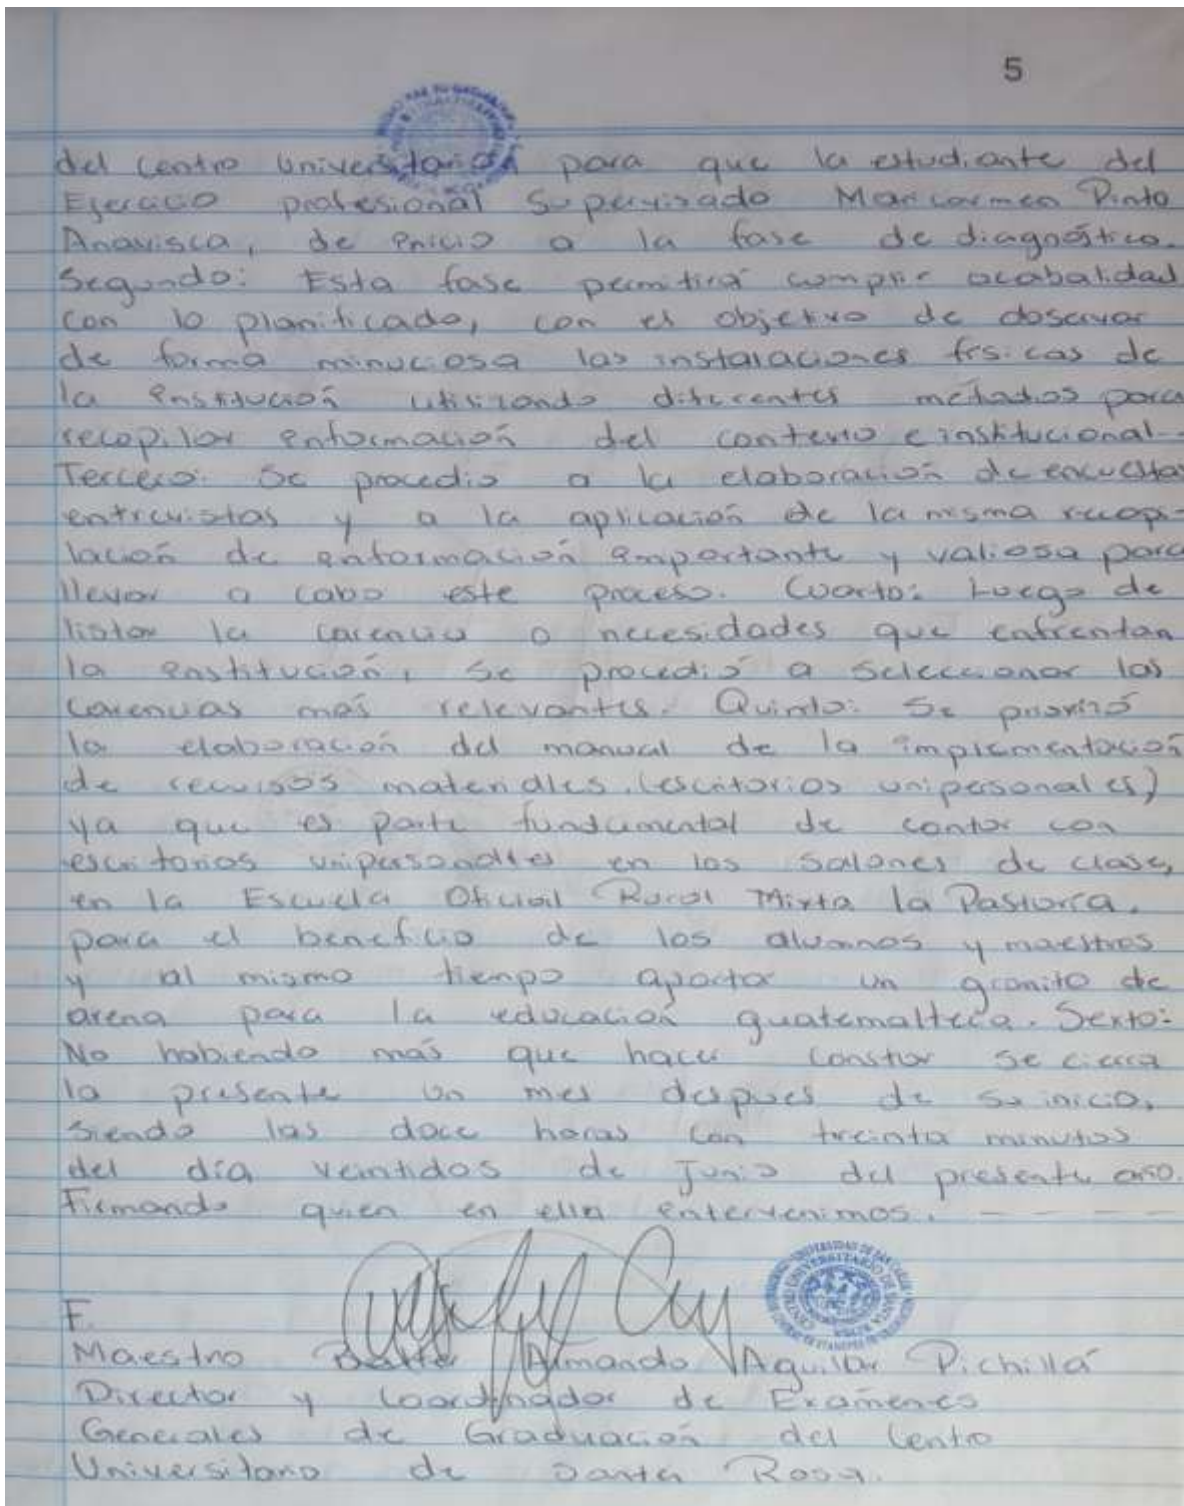 5
del Centro Universitario para que la estudiante del
Ejercicio profesional Supervisado Maricarmen Pinto
Anavisca, de enicio a la fase de diagnóstico.
Segundo: Esta fase permitirá cumplir acabalidad
con lo planificado, con el objetivo de observar
de forma minuciosa las instalaciones físicas de
la enstitución utilizando diferentes métados para
recopilar enformación del contexto e institucional-
Tercero: Se procedio a la elaboración de encuestas
entrevistas y a la aplicación de la misma recopi-
lación de enformación emportante y valiosa para
llevar a cabo este proceso. Cuarto: Luego de
listar la carencia o necesidades que enfrentan
la enstitución, se procedió a seleccionar las
carencias más relevantes. Quinto: Se priorizó
la elaboración del manual de la implementación
de recursos materiales. (escritorios unipersonales)
ya que es parte fundamental de contar con
escritorios unipersonales en los salones de clase,
en la Escuela Oficial Rural Mixta la Pastoría.
para el beneficio de los alumnos y maestros
y al mismo tiempo aportar un granito de
arena para la educación guatemalteca. Sexto:
No habiendo más que hacer constar se cierra
la presente un mes despues de su inicio,
siendo las doce horas con treinta minutos
del día veintidos de Junio del presente año.
Firmando quien en ella entervenimos. - - - -
F.
Maestro Armando Aguilar Pichillá
Director y Coordinador de Exámenes
Generales de Graduación del Centro
Universitario de Santa Rosa.